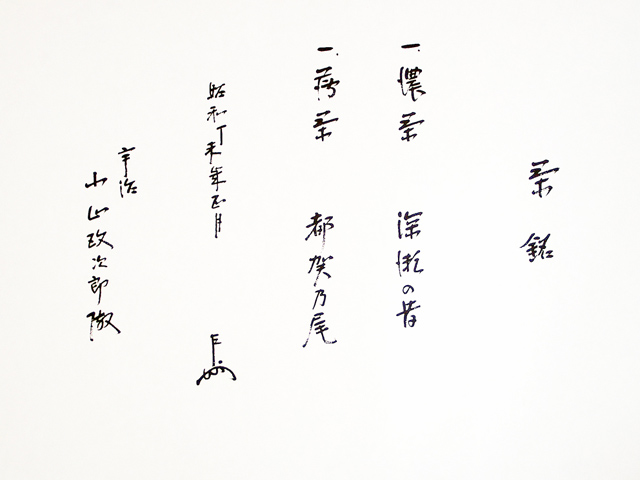 茶銘
一、濃茶　深瀬の昔
一、薄茶　都賀乃尾
昭和丁未年正月
宇治
小山政次郎